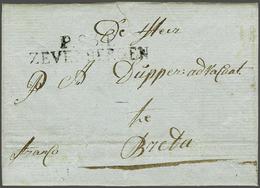 De Heer
ZEVENBERGEN
P A Dupper: advocaat
te
Breda
franco